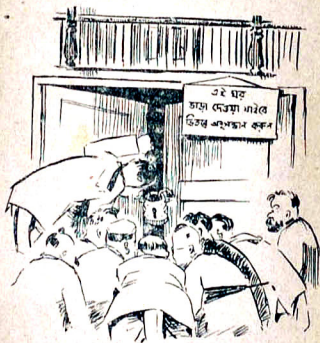 এই ঘর
ভাড়া দেওয়া যাইবে
ভিতরে অনুসন্ধান করুন